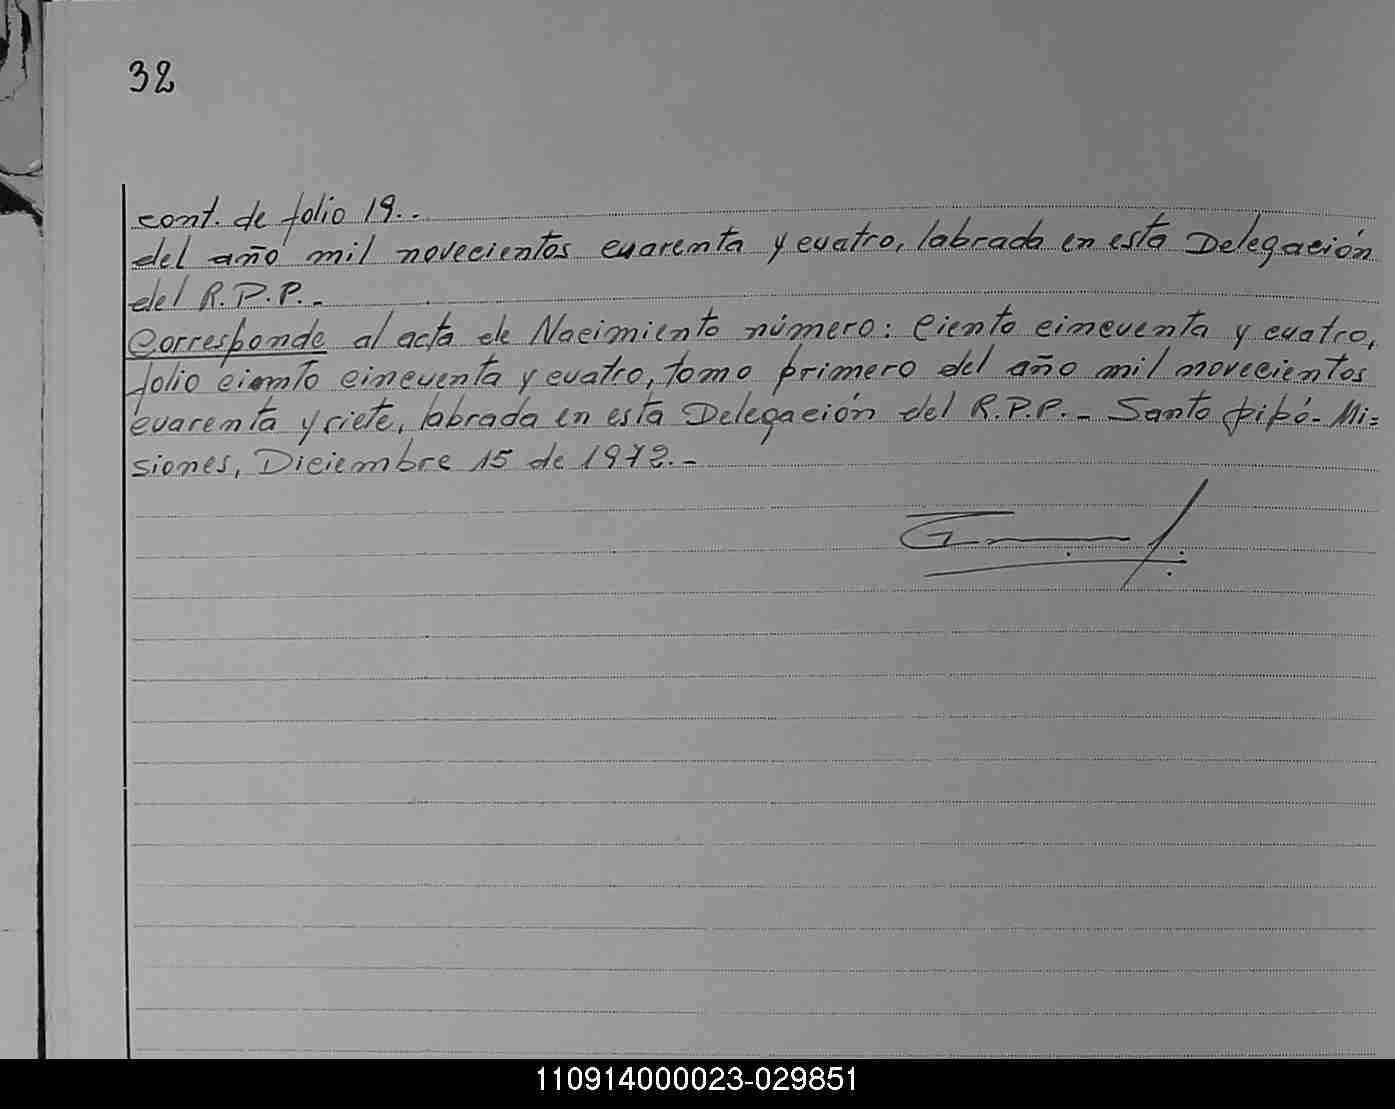 32
cont. de folio 19..
del año mil novecientos cuarenta y cuatro, labrada en esta Delegación
del R.P.P.-
Corresponde al acta de Nacimiento número: Ciento cincuenta y cuatro,
folio ciento cincuenta y cuatro, tomo primero del año mil novecientos
cuarenta y siete, labrada en esta Delegación del R.P.P.- Santo pipó- Mi=
siones, Diciembre 15 de 1972.-
110914000023-029851